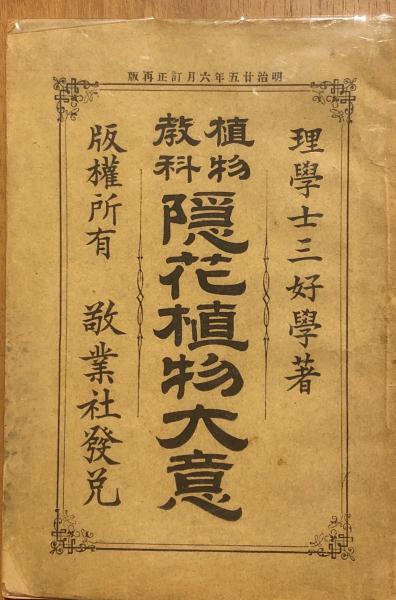 明治廿五年六月訂正再版
理學士三好學著
植物
教科
隠花植物大意
版權所有 敬業社發兌